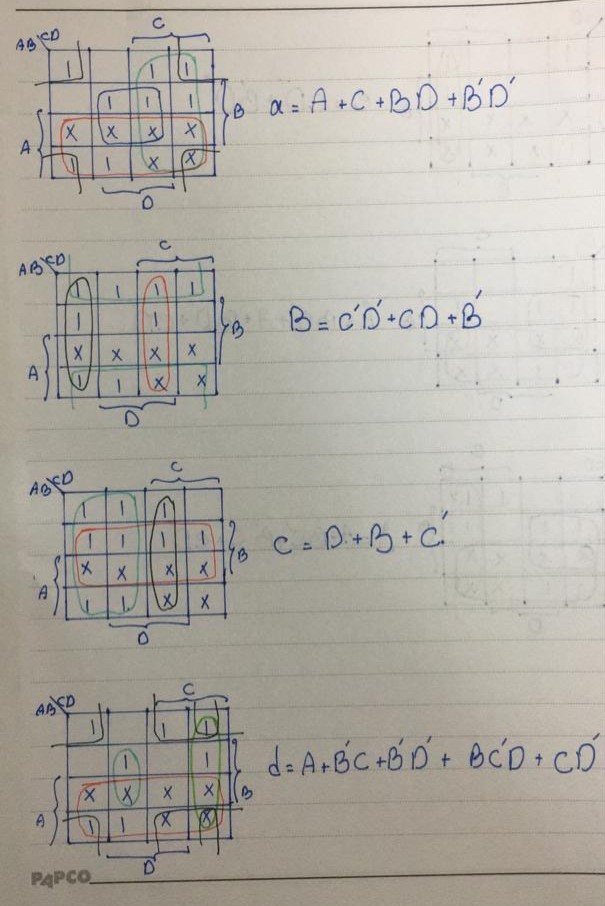 C
AB CD
1 1 1
1 1 1 B
A x x x x
1 1 x x
D
a = A + C + BD + B'D'
C
AB CD
1 1 1 1
1 1 B
A x x x x
1 1 x x
D
B = C'D' + CD + B'
C
AB CD
1 1 1
1 1 1 1 B
A x x x x
1 1 x x
D
C = D + B + C'
C
AB CD
1 1 1
1 1 B
A x x x x
1 1 x x
D
d = A + B'C + B'D' + BC'D + CD'
PAPCO